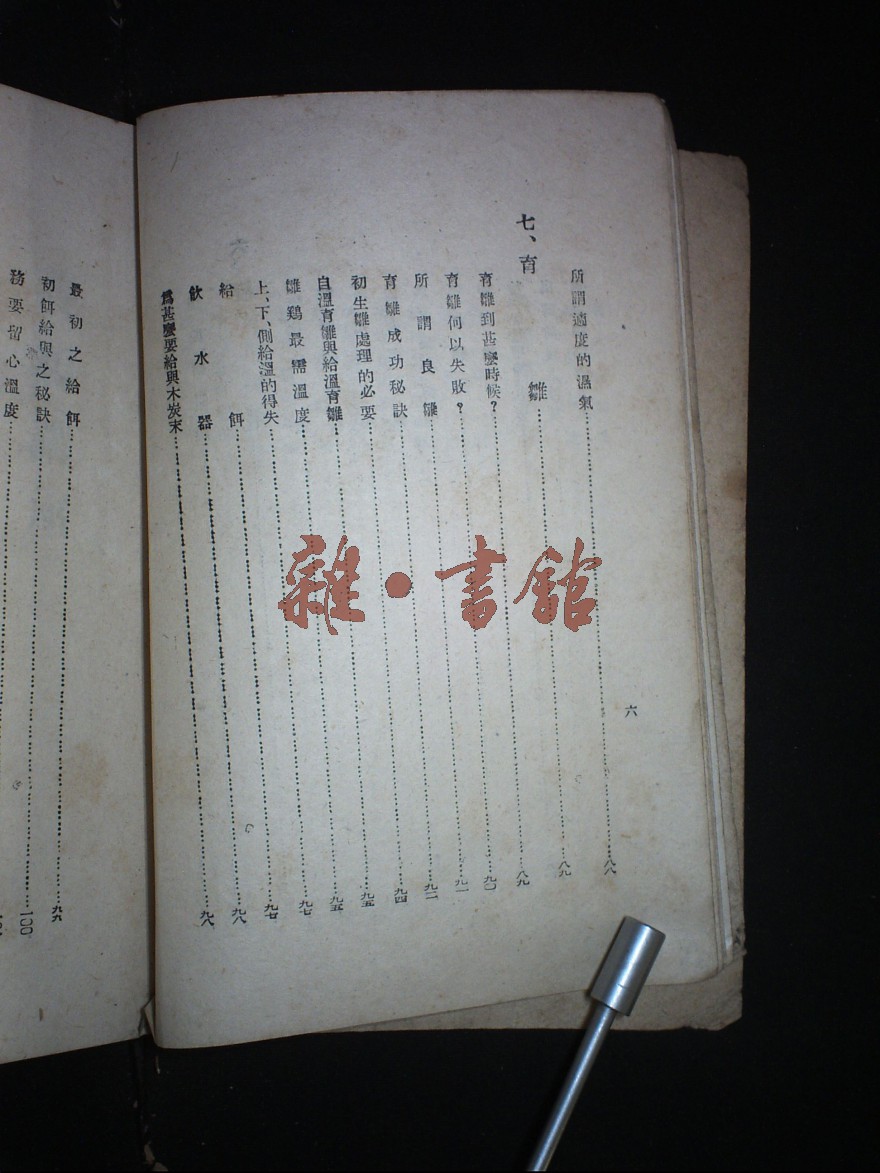 六
所謂適度的濕氣……八八
七、育雛……八九
育雛到甚麼時候?……八九
育雛何以失敗?……九〇
所謂良雛……九一
育雛成功秘訣……九二
初生雛處理的必要……九四
自溫育雛與給溫育雛……九五
雛鷄最需溫度……九五
上、下、側給溫的得失……九七
給餌……九七
飲水器……九八
爲甚麼要給與木炭末……九八
最初之給餌……九九
初餌給與之秘訣……100
務要留心溫度……
雜·書館